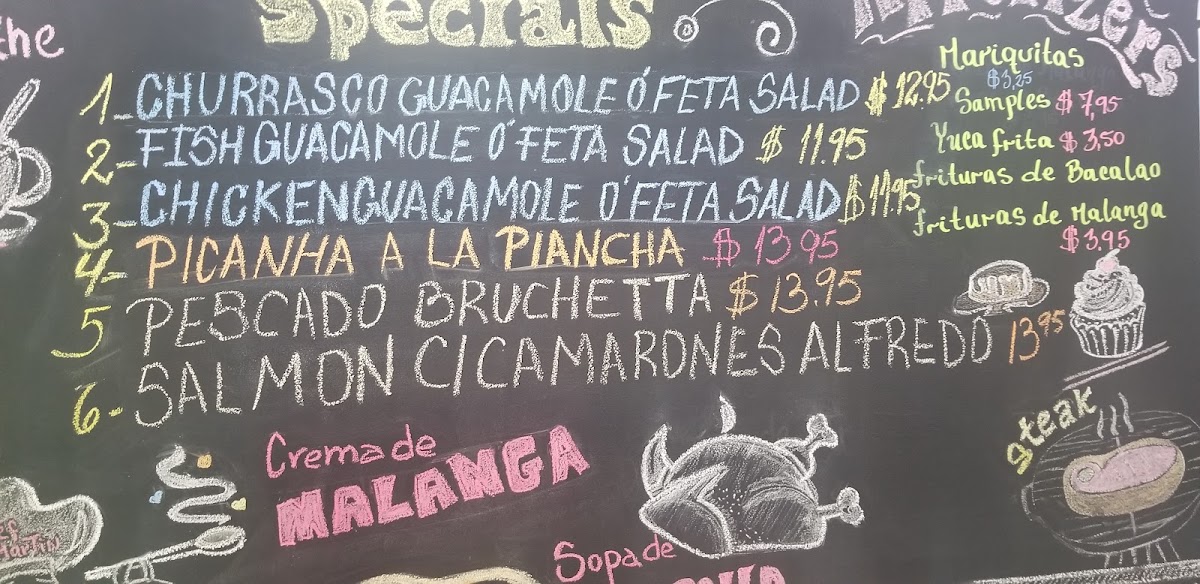 the
Specials
1- CHURRASCO GUACAMOLE Ó FETA SALAD $ 12.95
2- FISH GUACAMOLE Ó FETA SALAD $ 11.95
3- CHICKEN GUACAMOLE Ó FETA SALAD $ 11.95
4- PICANHA A LA PIANCHA $ 13.95
5 PESCADO BRUCHETTA $ 13.95
6- SALMON C/CAMARONES ALFREDO 13.95
Crema de
MALANGA
Sopa de
Appetizers
Mariquitas
$3,25
Samples $ 7,95
Yuca frita $ 3,50
frituras de Bacalao
frituras de Malanga
$ 3,95
Steak
Martin